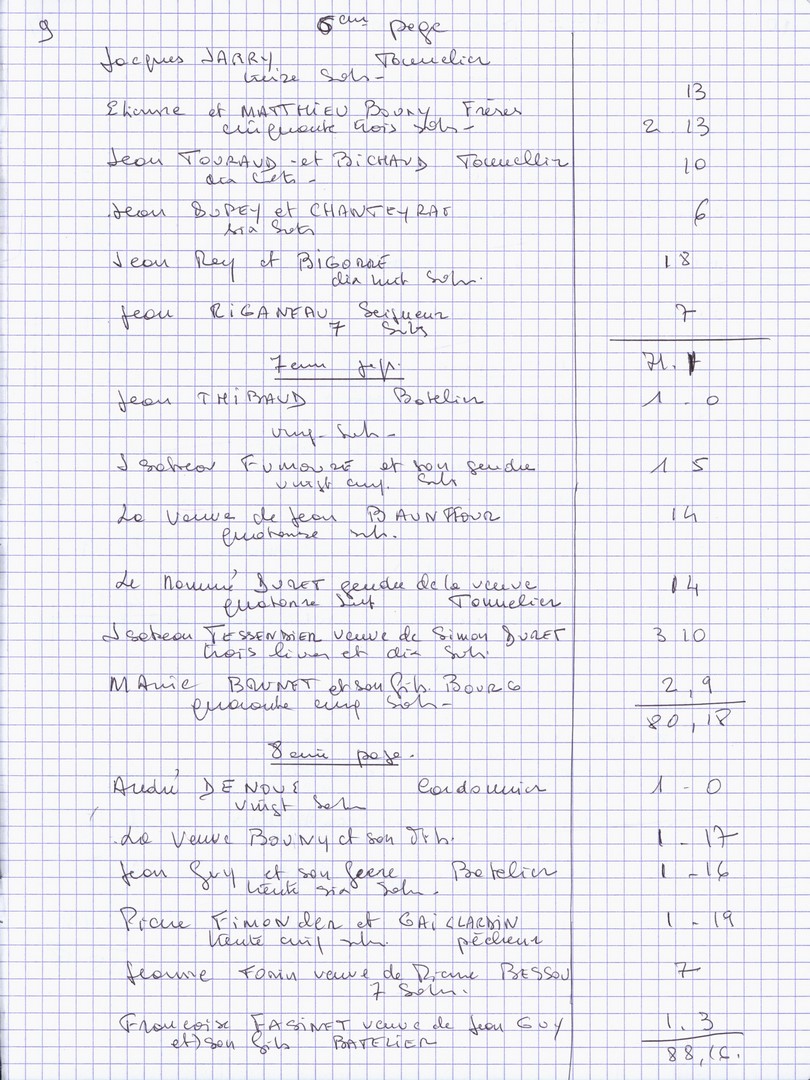 9
6ème page
Jacques JARRY Tonnelier
treize Sols - 13
Etienne et MATTHIEU BOUNY Frères
cinquante trois sols - 2 13
Jean TOURAUD - et BICHAUD Tonnellier 10
dix
Jean DUPEY et CHANTEYRAC 6
six Sols
Jean Rey et BIGORRE 18
dix huit Sols.
Jean RIGANEAU Seigneur 7
7 Sols
71.
7ème
Jean THIBAUD Batelier 1 - 0
ving - Sols -
Isabeau FUMOUZE et son gendre 1 5
vingt cinq. Sols
La veuve de Jean 14
quatorze sols.
Le nommé DURET gendre de la veuve 14
quatorze Tonnelier
Isabeau TESSENDIER veuve de Simon DURET 3 10
trois livres et dix Sols.
MArie BRUNET et son fils. BOURG 2,9
quarante cinq Sols -
80,18
8ème page.
André DENOUE Cordonnier 1 - 0
vingt Sols
La Veuve BOUNY et son 1 - 17
Jean Guy et son frere Batelier 1 - 16
trente six Sols.
Pierre et GAILLARDIN 1 - 19
trente cinq sols. pêcheur
Jeanne veuve de Pierre BESSOU 7
7 Sols.
Françoise FASINET veuve de Jean GUY 1.3
et) son fils BATELIER
88,16.